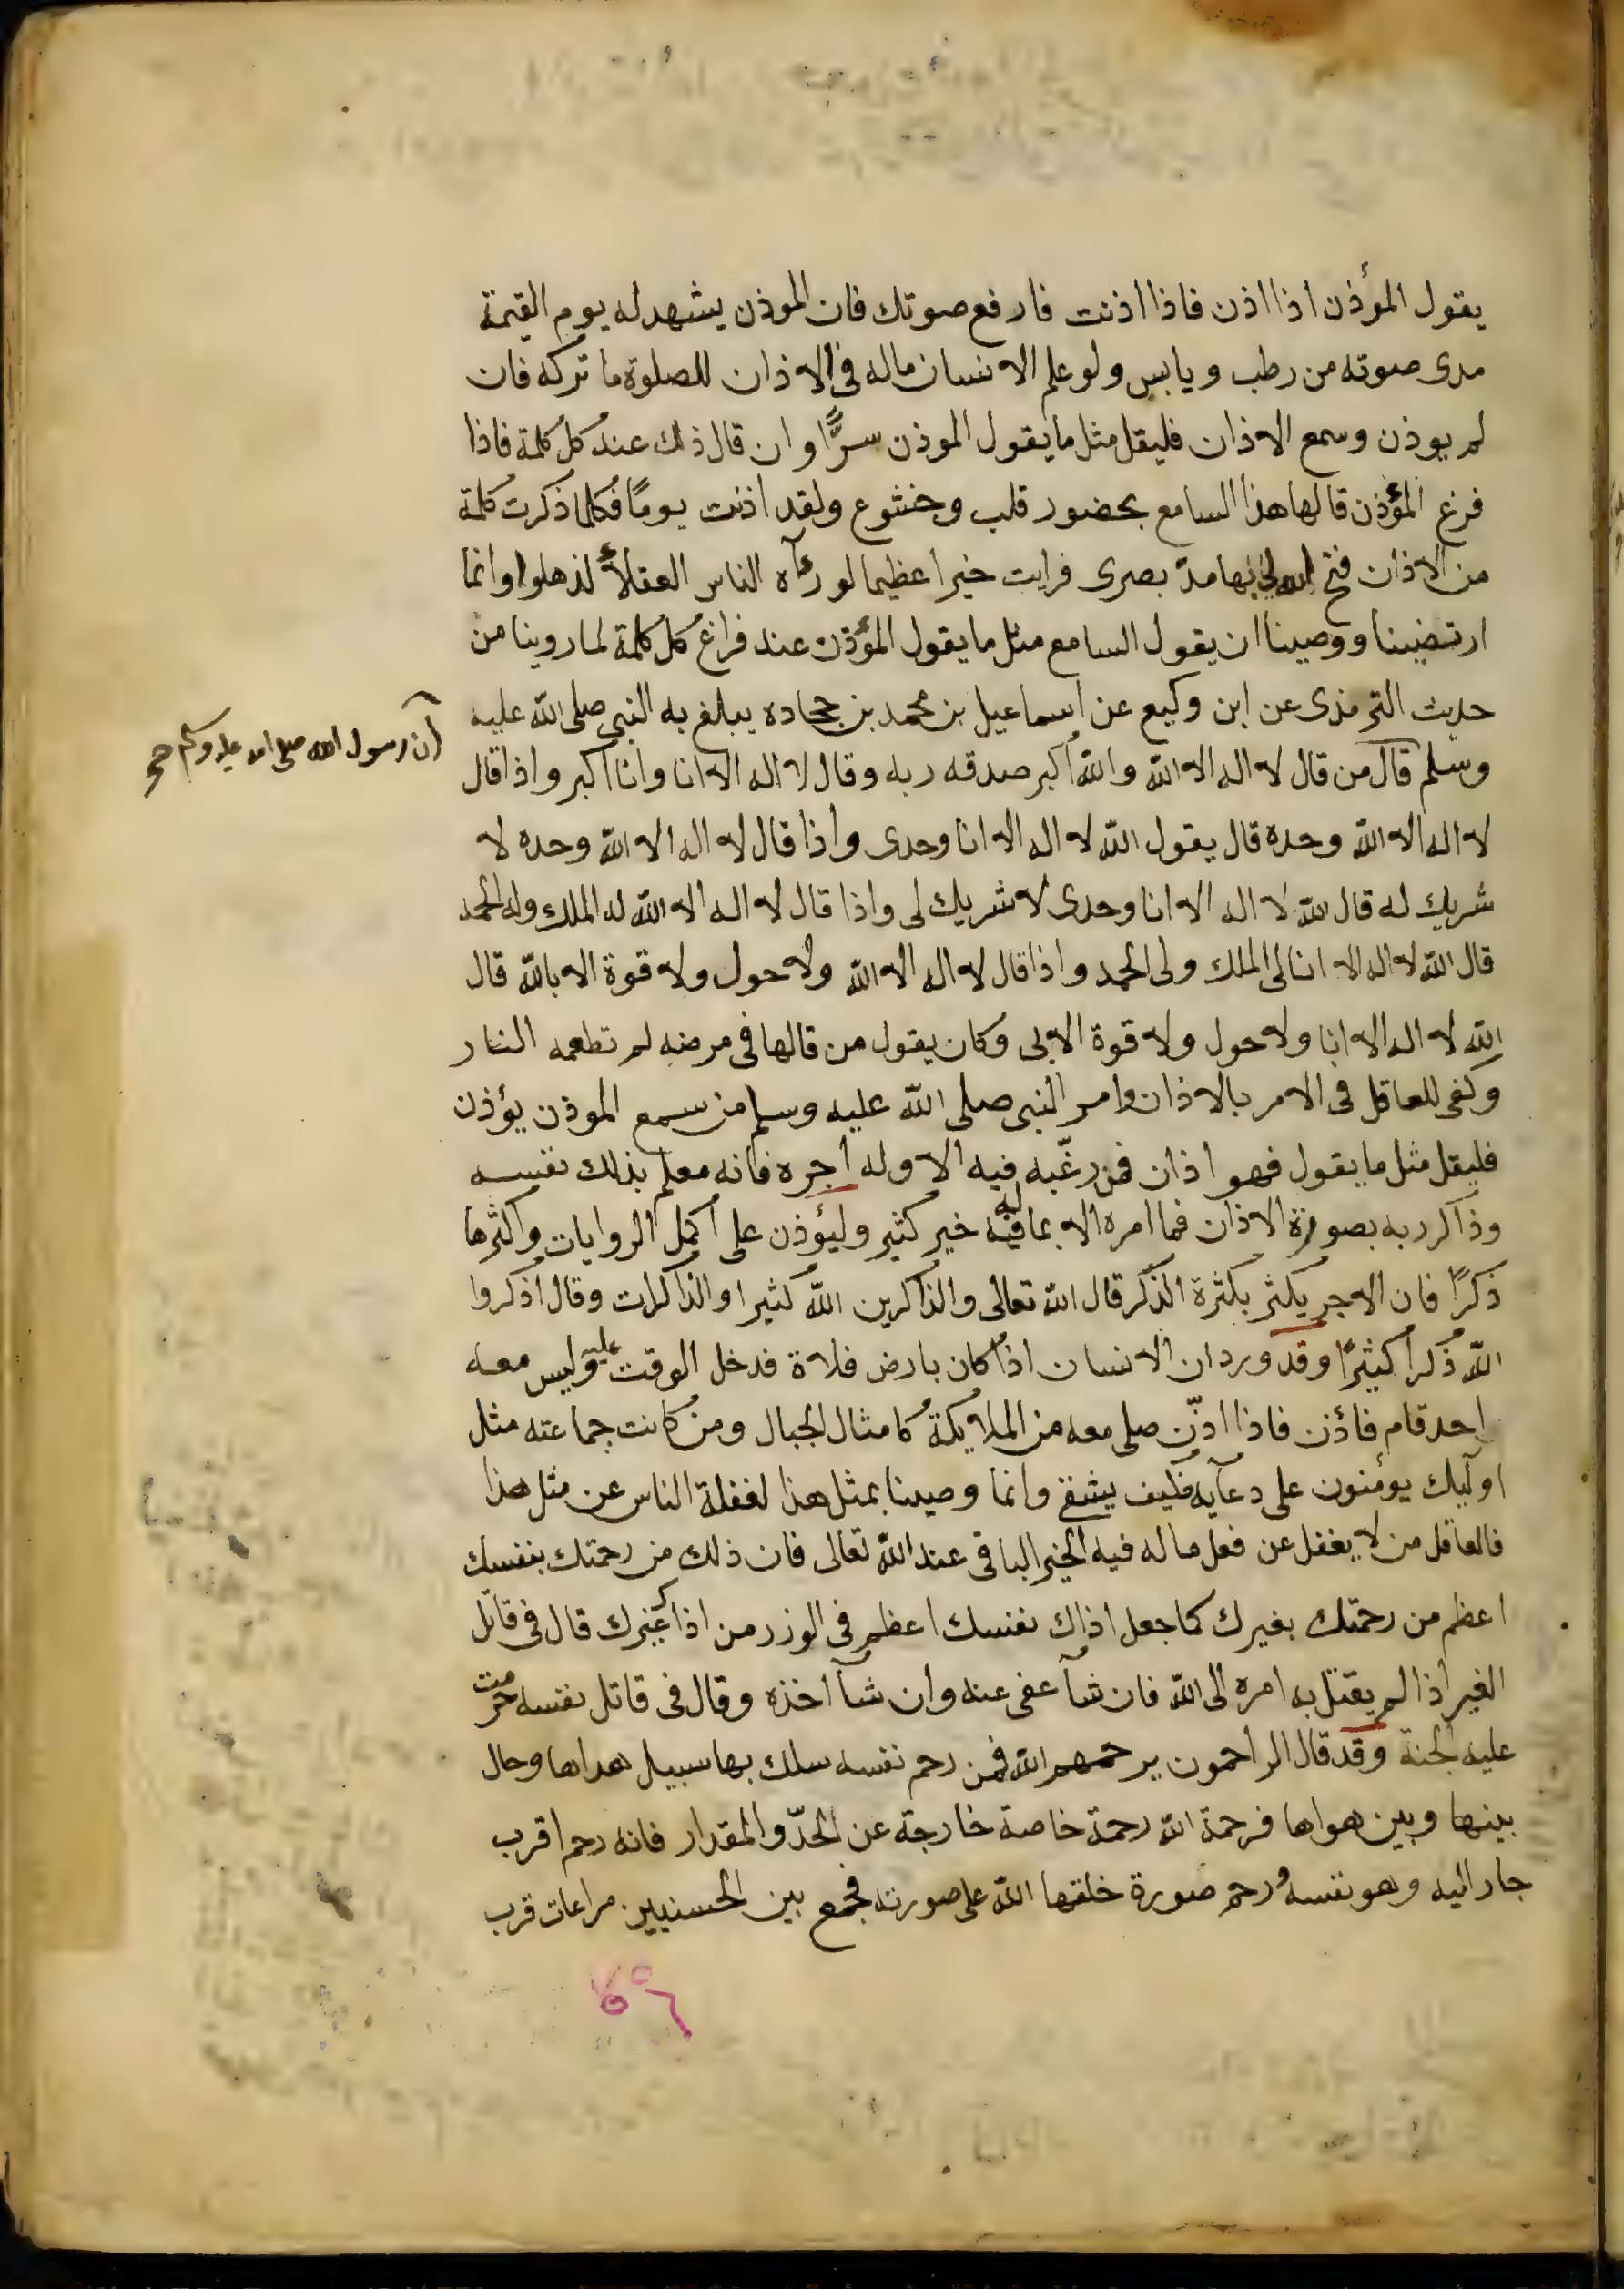 يقول المؤذن اذا اذن فاذا اذنت فارفع صوتك فان الموذن يشهد له يوم القيمة
مدى صوته من رطب ويابس ولو علم الانسان ماله فى الاذان للصلوة ما تركه فان
لم يوذن وسمع الاذان فليقل مثل ما يقول الموذن سرًّا وان قال ذلك عند كل كلمة فاذا
فرغ المؤذن قالها هذا السامع بحضور قلب وخشوع ولقد اذنت يومًا فكلما ذكرت كلمة
من الاذان فتح الله لى بها مدّ بصرى فرايت خيرا عظيما لو رءآه الناس العقلاء لذهلوا وانما
ارتضينا ووصينا ان يقول السامع مثل ما يقول المؤذن عند فراغ كل كلمة لما روينا من
حديث الترمذى عن ابن وكيع عن اسماعيل بن محمد بن جحاده يبلغ به النبى صلى الله عليه
ان رسول الله صلى الله عليه وسلم صح
وسلم قال من قال لا اله الا الله والله اكبر صدقه ربه وقال لا اله الا انا وانا اكبر واذا قال
لا اله الا الله وحده قال يقول الله لا اله الا انا وحدى واذا قال لا اله الا الله وحده لا
شريك له قال الله لا اله الا انا وحدى لا شريك لى واذا قال لا اله الا الله له الملك وله الحمد
قال الله لا اله الا انا لى الملك ولى الحمد واذا قال لا اله الا الله ولا حول ولا قوة الا بالله قال
الله لا اله الا انا ولا حول ولا قوة الا بى وكان يقول من قالها فى مرضه لم تطعمه النار
وكفى للعاقل فى الامر بالاذان وامر النبى صلى الله عليه وسلم من سمع الموذن يؤذن
فليقل مثل ما يقول فهو اذان فمن رغّبه فيه الا وله اجره فانه معلم بذلك نفسه
وذاكر ربه بصورة الاذان فما امره الا بما له فيه خير كثير وليؤذن على اكمل الروايات واكثرها
ذكرًا فان الاجر يكثر بكثرة الذكر قال الله تعالى والذاكرين الله كثيرا والذاكرات وقال اذكروا
الله ذكرا كثيرًا وقد ورد ان الانسان اذا كان بارض فلاة فدخل الوقت عليه وليس معه
احد قام فاؤذن فاذا اذّن صلى معه من الملايكة كامثال الجبال ومن كانت جماعته مثل
اوليك يومنون على دعآيه فكيف يشقى وانما وصينا بمثل هذا لغفلة الناس عن مثل هذا
فالعاقل من لا يغفل عن فعل ما له فيه الخير الباقى عند الله تعالى فان ذلك من رحمتك بنفسك
اعظم من رحمتك بغيرك كما جعل اذاك نفسك اعظم فى الوزر من اذاك غيرك قال فى قاتل
الغير اذا لم يقتل به امره الى الله فان شآ عفى عنه وان شآ اخذه وقال فى قاتل نفسه حرمت
عليه الجنة وقد قال الراحمون يرحمهم الله فمن رحم نفسه سلك بها سبيل هداها وحال
بينها وبين هواها فرحمة الله رحمة خاصة خارجة عن الحدّ والمقدار فانه رحم اقرب
جار اليه وهو نفسه ورحم صورة خلقها الله على صورته فجمع بين الحسنيين مراعات قرب